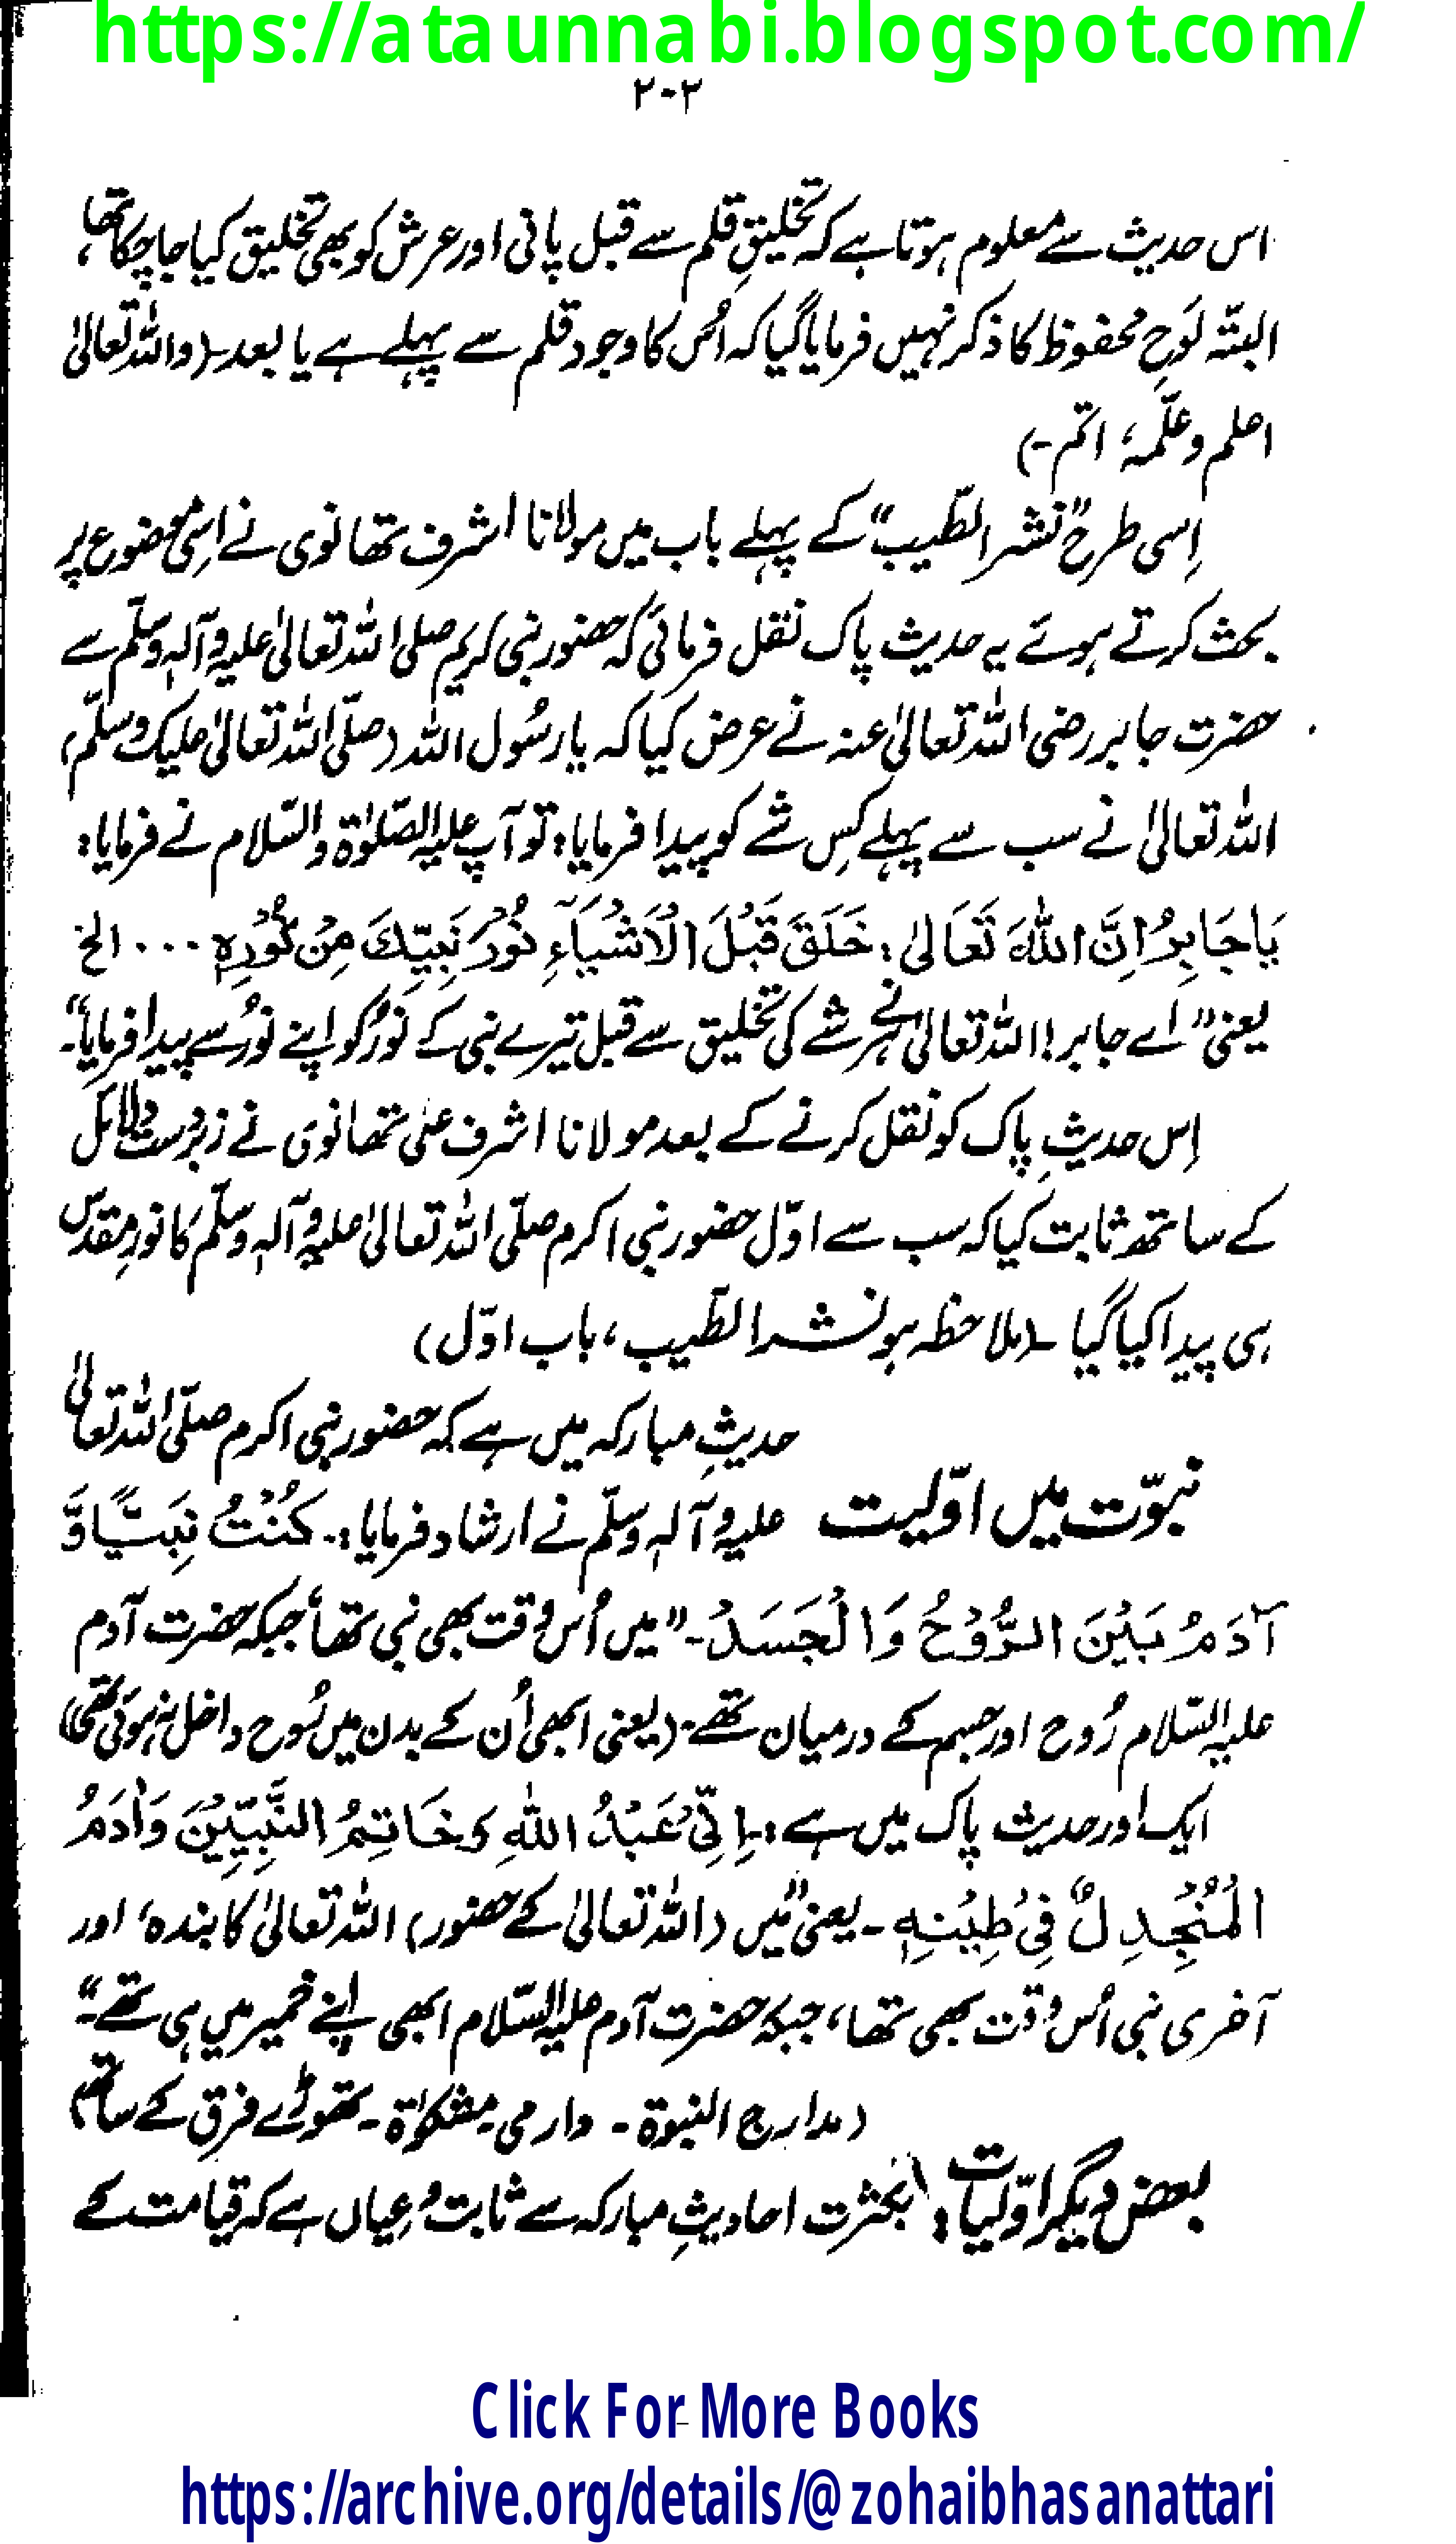 https://ataunnabi.blogspot.com/
۲۰۳
اس حدیث سے معلوم ہوتا ہے کہ تخلیقِ قلم سے قبل پانی اور عرش کو بھی تخلیق کیا جا چکا تھا،
البتّہ لَوحِ محفوظ کا ذکر نہیں فرمایا گیا کہ اُس کا وجود قلم سے پہلے ہے یا بعد۔ (واللہ تعالیٰ
اعلم وعلّمہٗ اتم۔)
اِسی طرح ”نشر الطّیب“ کے پہلے باب میں مولانا اشرف تھانوی نے اسِی موضوع پر
بحث کرتے ہوئے یہ حدیث پاک نقل فرمائی کہ حضور نبی کریم صلی اللہ تعالیٰ علیہ وآلہٖ وسلّم سے
حضرت جابر رضی اللہ تعالیٰ عنہ نے عرض کیا کہ یا رسُول اللہ (صلّی اللہ تعالیٰ علیک وسلّم)
اللہ تعالیٰ نے سب سے پہلے کِس شے کو پیدا فرمایا؟ تو آپ علیہ الصّلوٰۃ والسّلام نے فرمایا:
یَا جَابِرُ اِنَّ اللهَ تَعَالیٰ: خَلَقَ قَبْلَ الْاَشْیَآءِ نُوْرَ نَبِیِّكَ مِنْ نُّوْرِہٖ ۰۰۰ الخ
یعنی ”اے جابر! اللہ تعالیٰ نے ہر شے کی تخلیق سے قبل تیرے نبی کے نورُ کو اپنے نورُ سے پیدا فرمایا“۔
اِس حدیثِ پاک کو نقل کرنے کے بعد مولانا اشرف علی تھانوی نے زبردست دلائل
کے ساتھ ثابت کیا کہ سب سے اوّل حضور نبی اکرم صلّی اللہ تعالیٰ علیہ وآلہٖ وسلّم کا نورِ مقدّس
ہی پیدا کیا گیا ۔ (ملاحظہ ہو نشر الطّیب، باب اوّل)
حدیثِ مبارکہ میں ہے کہ حضور نبی اکرم صلّی اللہ تعالیٰ
نبوّت میں اوّلیت علیہ وآلہٖ وسلّم نے ارشاد فرمایا :۔ کُنْتُ نَبِیًّا وَّ
آدَمُ بَیْنَ الرُّوْحُ وَالْجَسَدُ۔ ”میں اُس وقت بھی نبی تھا جبکہ حضرت آدم
علیہ السّلام رُوح اور جسم کے درمیان تھے۔ (یعنی ابھی اُن کے بدن میں رُوح داخل نہ ہوئی تھی)
ایک اور حدیث پاک میں ہے :۔ اِنِّیْ عَبْدُ اللهِ وَخَاتِمُ النَّبِیِّیْنَ وَاٰدَمُ
الْمُنْجَدِلٌ فِیْ طِیْنِہٖ ۔ یعنی ”میں (اللہ تعالیٰ کے حضور) اللہ تعالیٰ کا بندہ، اور
آخری نبی اُس وقت بھی تھا، جبکہ حضرت آدم علیہ السّلام ابھی اپنے خمیر میں ہی تھے“۔
(مدارج النبوۃ ۔ دارمی۔ مشکوٰۃ ۔ تھوڑے فرق کے ساتھ)
بعض دیگر اوّلیات: بکثرت احادیثِ مبارکہ سے ثابت و عِیاں ہے کہ قیامت کے
Click For More Books
https://archive.org/details/@zohaibhasanattari